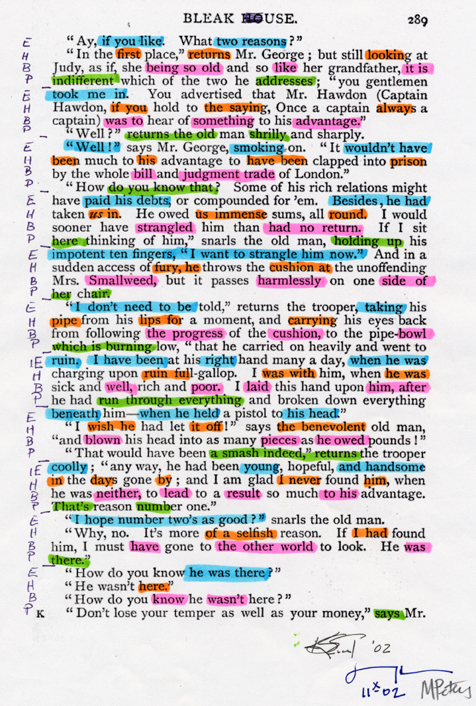 BLEAK HOUSE. 289
E "Ay, if you like. What two reasons?"
H "In the first place," returns Mr. George; but still looking at
B Judy, as if, she being so old and so like her grandfather, it is
P indifferent which of the two he addresses; "you gentlemen
E took me in. You advertised that Mr. Hawdon (Captain
H Hawdon, if you hold to the saying, Once a captain always a
B captain) was to hear of something to his advantage."
P "Well?" returns the old man shrilly and sharply.
E "Well!" says Mr. George, smoking on. "It wouldn't have
H been much to his advantage to have been clapped into prison
B by the whole bill and judgment trade of London."
P "How do you know that? Some of his rich relations might
E have paid his debts, or compounded for 'em. Besides, he had
H taken us in. He owed us immense sums, all round. I would
B sooner have strangled him than had no return. If I sit
P here thinking of him," snarls the old man, holding up his
E impotent ten fingers, "I want to strangle him now." And in a
H sudden access of fury, he throws the cushion at the unoffending
B Mrs. Smallweed, but it passes harmlessly on one side of
P her chair.
E "I don't need to be told," returns the trooper, taking his
H pipe from his lips for a moment, and carrying his eyes back
B from following the progress of the cushion, to the pipe-bowl
P which is burning low, "that he carried on heavily and went to
E ruin. I have been at his right hand many a day, when he was
H charging upon ruin full-gallop. I was with him, when he was
B sick and well, rich and poor. I laid this hand upon him, after
P he had run through everything and broken down everything
E beneath him—when he held a pistol to his head."
H "I wish he had let it off!" says the benevolent old man,
B "and blown his head into as many pieces as he owed pounds!"
P "That would have been a smash indeed," returns the trooper
E coolly; "any way, he had been young, hopeful, and handsome
H in the days gone by; and I am glad I never found him, when
B he was neither, to lead to a result so much to his advantage.
P That's reason number one."
E "I hope number two's as good?" snarls the old man.
H "Why, no. It's more of a selfish reason. If I had found
B him, I must have gone to the other world to look. He was
P there."
E "How do you know he was there?"
H "He wasn't here."
B "How do you know he wasn't here?"
P K "Don't lose your temper as well as your money," says Mr.
'02
11 x 02 MPeters